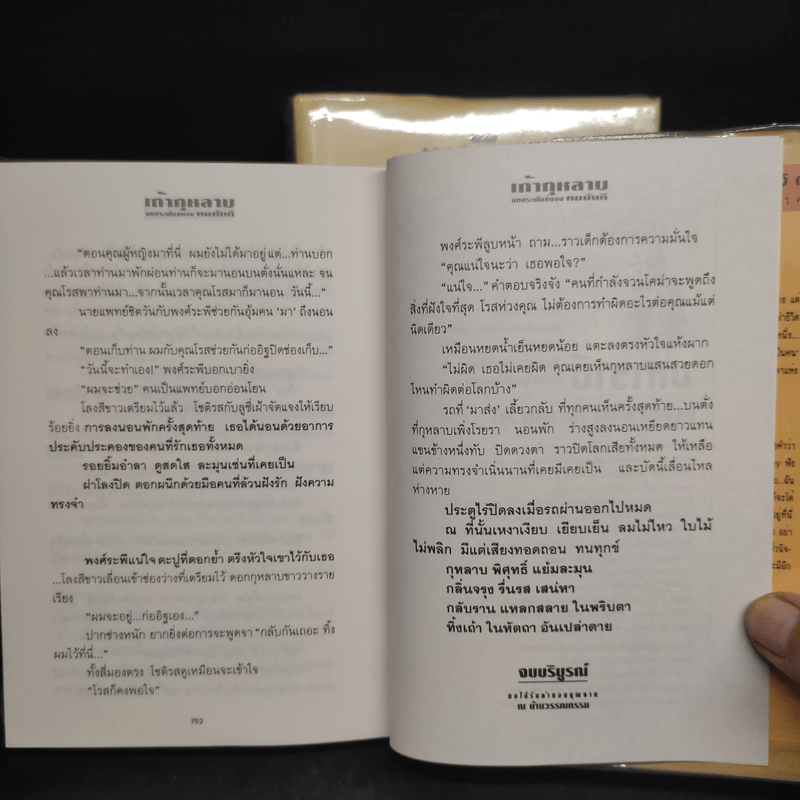 เถ้ากุหลาบ
บทประพันธ์ของ ทมยันตี
"ตอนคุณผู้หญิงมาที่นี่ ผมยังไม่ได้มาอยู่ แต่...ท่านบอก
...แล้วเวลาท่านมาพักผ่อนท่านก็จะมานอนบนตั่งนั่นแหละ จน
คุณโรสพาท่านมา...จากนั้นเวลาคุณโรสมาก็มานอน วันนี้..."
นายแพทย์ชิตวันกับพงศ์ระพีช่วยกันอุ้มคน 'มา' ถึงนอน
ลง
"ตอนเก็บท่าน ผมกับคุณโรสช่วยกันก่ออิฐปิดช่องเก็บ..."
"วันนี้จะทำเอง!" พงศ์ระพีบอกเบายิ่ง
"ผมจะช่วย" คนเป็นแพทย์บอกอ่อนโยน
โลงสีขาวเตรียมไว้แล้ว โชติรสกับลูซี่เฝ้าจัดแจงให้เรียบ
ร้อยยิ่ง การลงนอนพักครั้งสุดท้าย เธอได้นอนด้วยอาการ
ประคับประคองของคนที่รักเธอทั้งหมด
รอยยิ้มอำลา ดูสดใส ละมุนเช่นที่เคยเป็น
ฝาโลงปิด ตอกผนึกด้วยมือคนที่ล้วนฝังรัก ฝังความ
ทรงจำ
พงศ์ระพีแน่ใจ ตะปูที่ตอกย้ำ ตรึงหัวใจเขาไว้กับเธอ
...โลงสีขาวเลื่อนเข้าช่องว่างที่เตรียมไว้ ดอกกุหลาบขาววางราย
เรียง
"ผมจะอยู่...ก่ออิฐเอง..."
ปากช่างหนัก ยากยิ่งต่อการจะพูดจา "กลับกันเถอะ ทิ้ง
ผมไว้ที่นี่..."
ทั้งสี่มองตรง โชติรสดูเหมือนจะเข้าใจ
"โรสก็คงพอใจ"
752
เถ้ากุหลาบ
บทประพันธ์ของ ทมยันตี
พงศ์ระพีลูบหน้า ถาม...ราวเด็กต้องการความมั่นใจ
"คุณแน่ใจนะว่า เธอพอใจ?"
"แน่ใจ..." คำตอบจริงจัง "คนที่กำลังจวนโคม่าจะพูดถึง
สิ่งที่ฝังใจที่สุด โรสห่วงคุณ ไม่ต้องการทำผิดอะไรต่อคุณแม้แต่
นิดเดียว"
เหมือนหยดน้ำเย็นหยดน้อย แตะลงตรงหัวใจแห้งผาก
"ไม่ผิด เธอไม่เคยผิด คุณเคยเห็นกุหลาบแสนสวยดอก
ไหนทำผิดต่อโลกบ้าง"
รถที่ 'มาส่ง' เลี้ยวกลับ ที่ทุกคนเห็นครั้งสุดท้าย...บนตั่ง
ที่กุหลาบเพิ่งโรยรา นอนพัก ร่างสูงลงนอนเหยียดยาวแทน
แขนข้างหนึ่งทับ ปิดดวงตา ราวปิดโลกเสียทั้งหมด ให้เหลือ
แต่ความทรงจำเนิ่นนานที่เคยมีเคยเป็น และบัดนี้เลื่อนไหล
ห่างหาย
ประตูไร่ปิดลงเมื่อรถผ่านออกไปหมด
ณ ที่นั้นเหงาเงียบ เยียบเย็น ลมไม่ไหว ใบไม้
ไม่พลิก มีแต่เสียงทอดถอน ทนทุกข์
กุหลาบ พิศุทธิ์ แย้มละมุน
กลิ่นจรุง รื่นรส เสน่หา
กลับราน แหลกสลาย ในพริบตา
ทิ้งเถ้า ในหัตถา อันเปล่าดาย
จบบริบูรณ์
ขอได้รับคำขอบคุณจาก
ณ บ้านวรรณกรรม